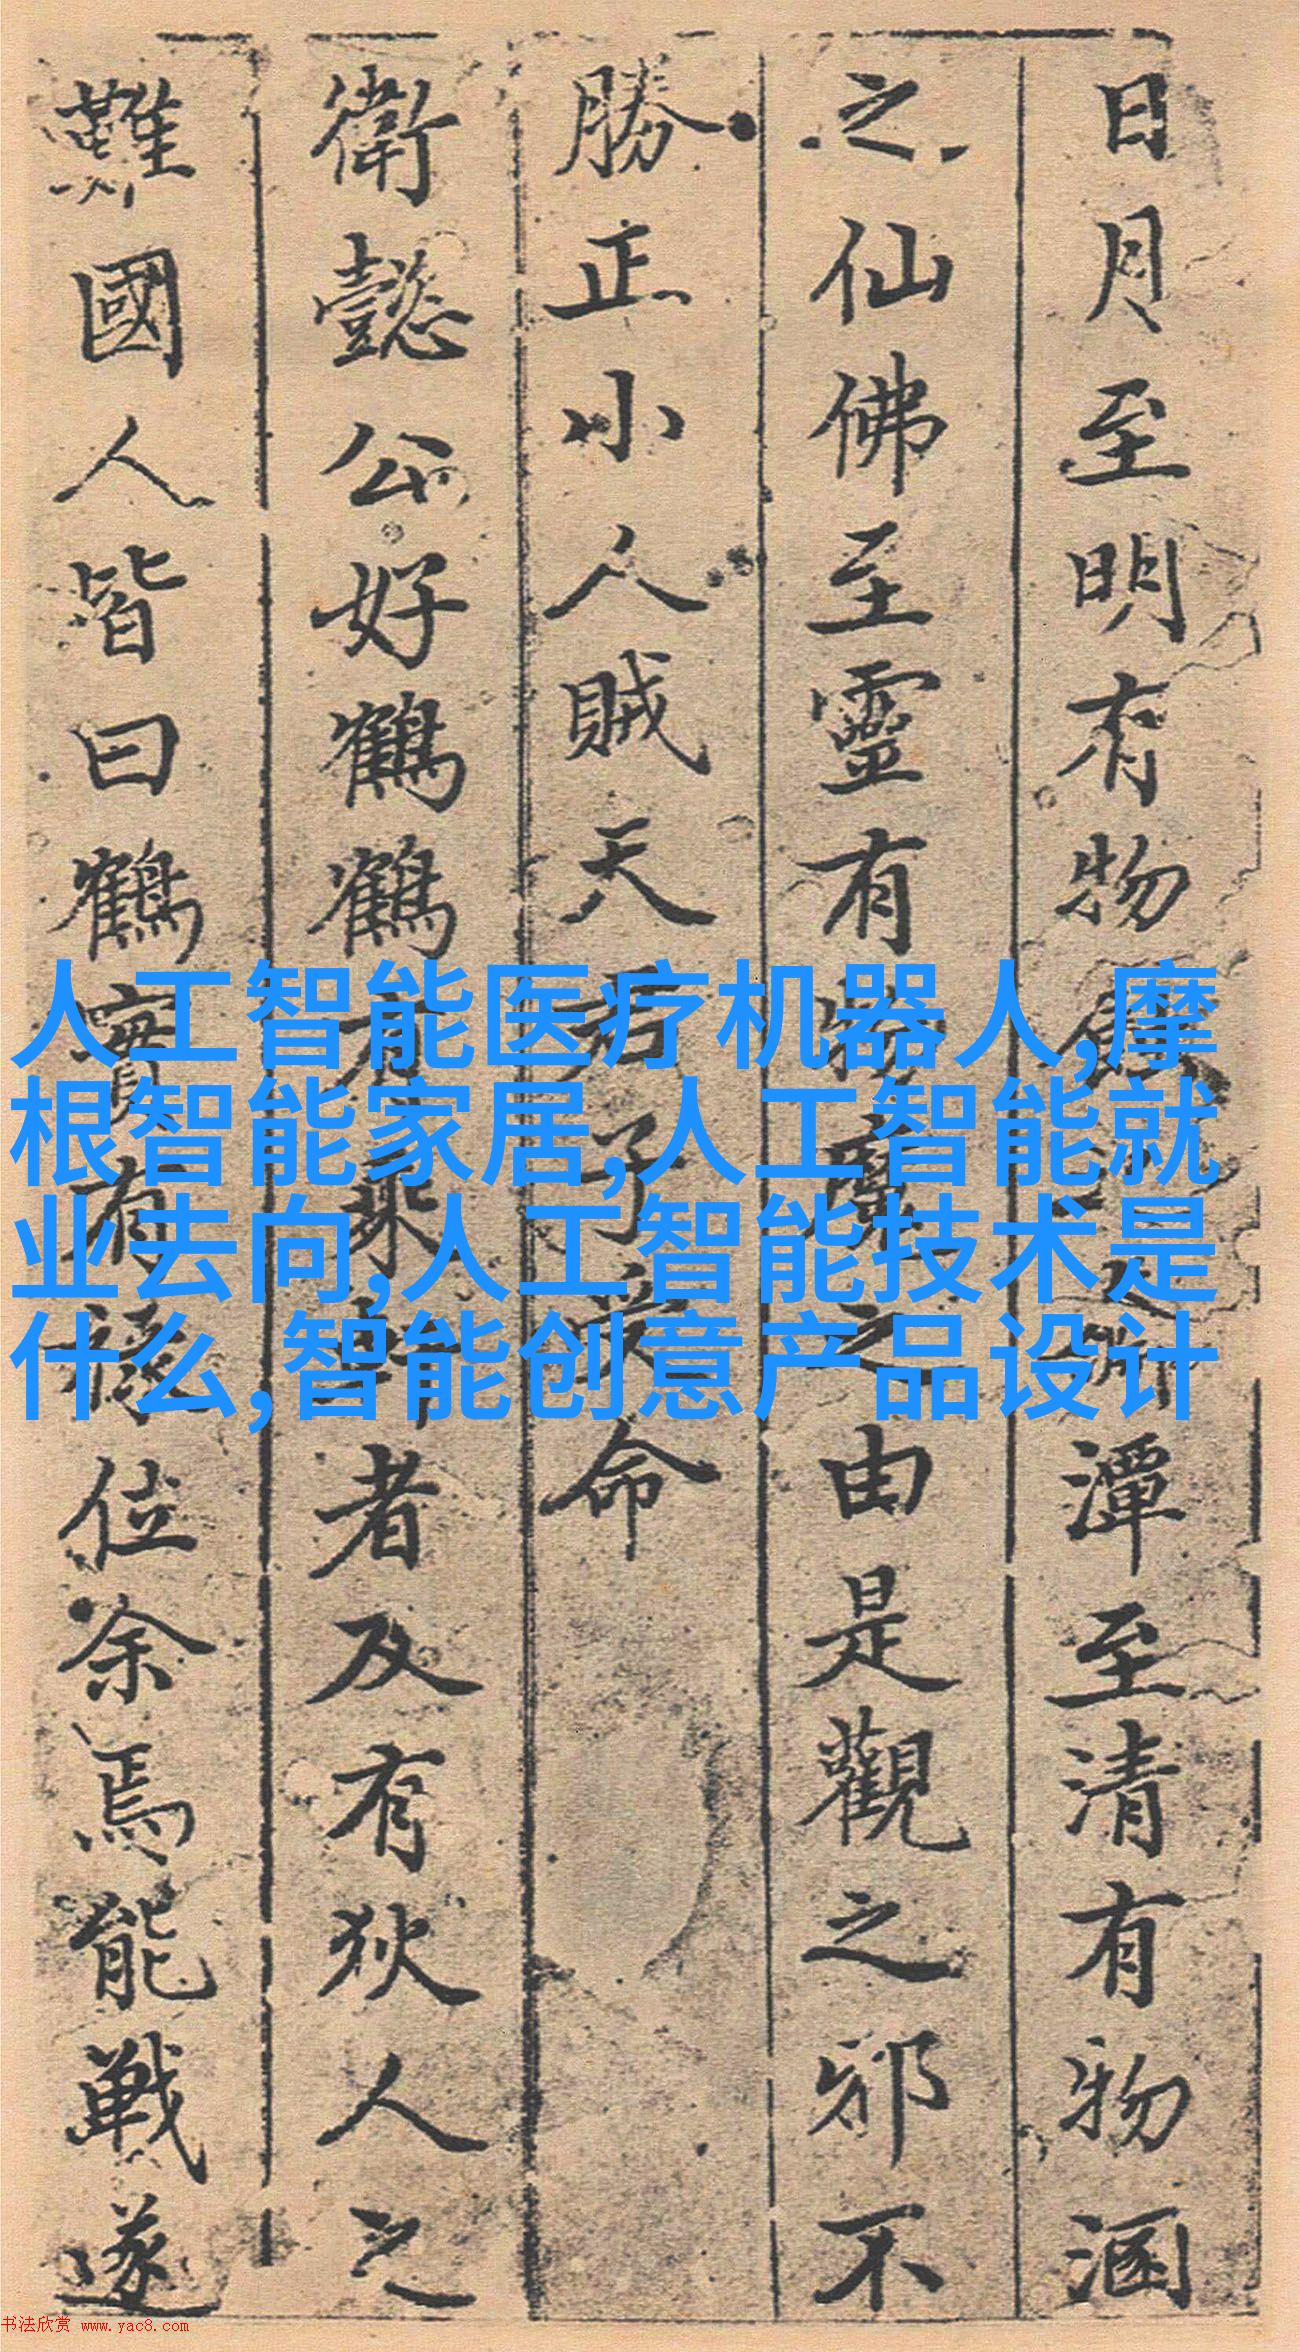 日月至明有物蝕之淵潭至清有物涵
之仙佛至靈有物魔之由是觀之邪不
勝正小人賊天君子安命
衛懿公好鶴鶴有乘軒者及有狄人之
難國人皆曰鶴實有祿位余焉能戰遂
人工智能医疗机器人,摩
根智能家居,人工智能就
业去向,人工智能技术是
什么,智能创意产品设计
书法欣赏 www.yac8.com